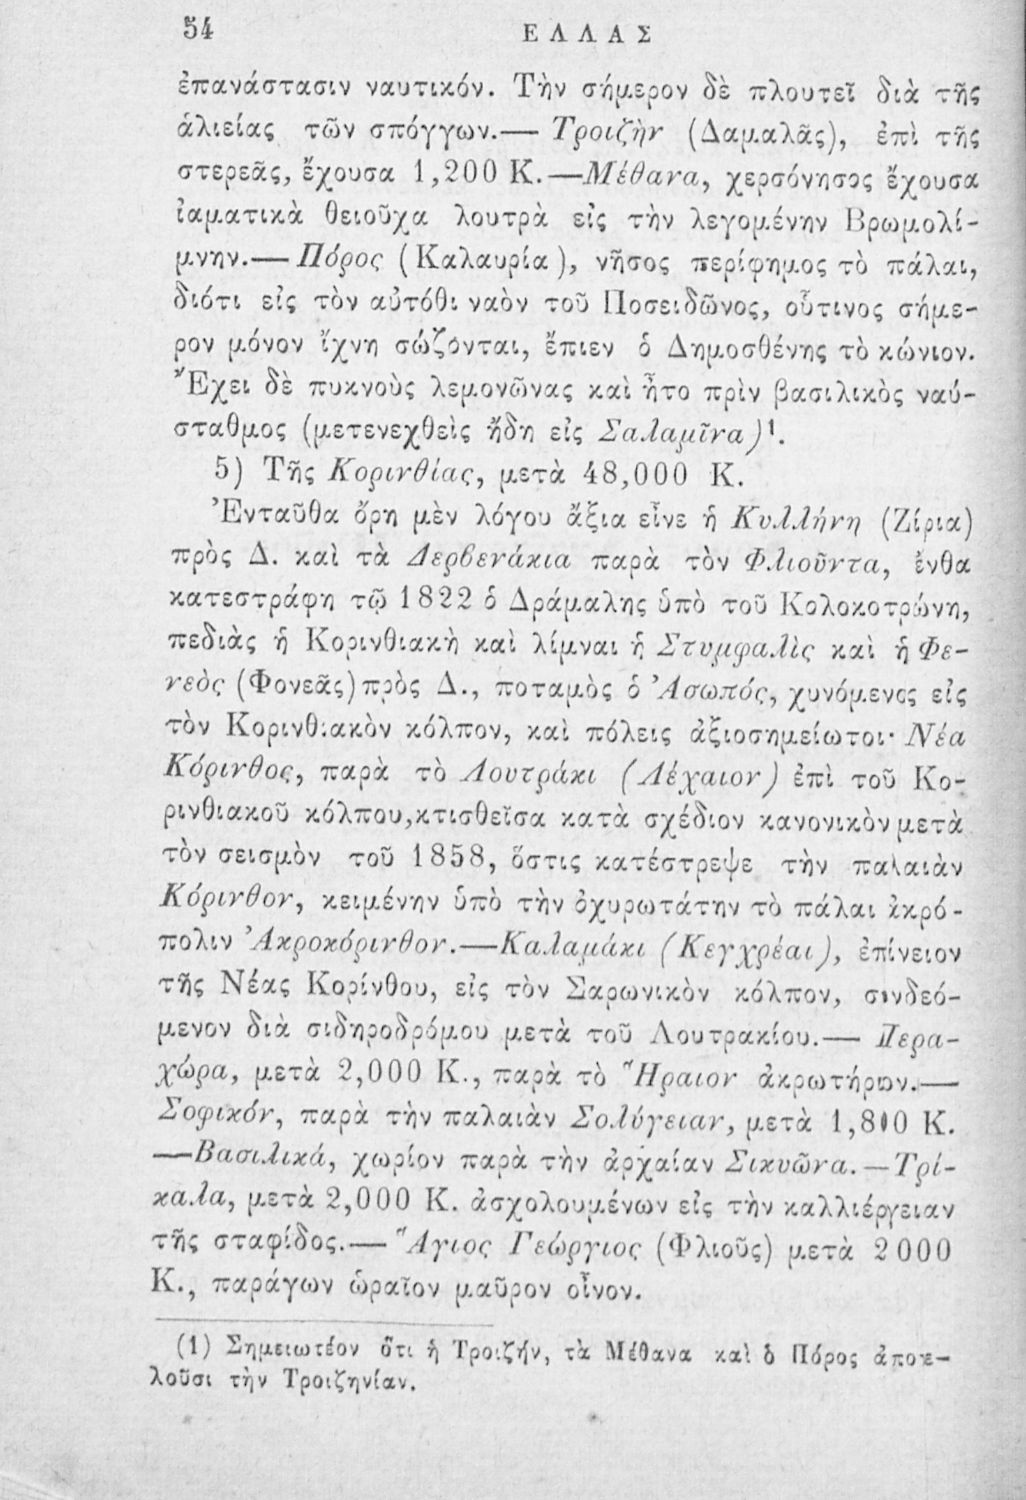 54 ΕΛΛΑΣ
ἐπανάστασιν ναυτικόν. Τὴν σήμερον δὲ πλουτεῖ διὰ τῆς
ἁλιείας τῶν σπόγγων.— Τροιζὴν (Δαμαλᾶς), ἐπὶ τῆς
στερεᾶς, ἔχουσα 1,200 Κ.—Μέθανα, χερσόνησος ἔχουσα
ἰαματικὰ θειοῦχα λουτρὰ εἰς τὴν λεγομένην Βρωμολί-
μνην.— Πόρος (Καλαυρία), νῆσος περίφημος τὸ πάλαι,
διότι εἰς τὸν αὐτόθι ναὸν τοῦ Ποσειδῶνος, οὗτινος σήμε-
ρον μόνον ἴχνη σώζονται, ἔπιεν ὁ Δημοσθένης τὸ κώνιον.
Ἔχει δὲ πυκνοὺς λεμονῶνας καὶ ἦτο πρὶν βασιλικὸς ναύ-
σταθμος (μετενεχθεὶς ἤδη εἰς Σαλαμῖνα)¹.
5) Τῆς Κορινθίας, μετὰ 48,000 Κ.
Ἐνταῦθα ὄρη μὲν λόγου ἄξια εἶνε ἡ Κυλλήνη (Ζίρια)
πρὸς Δ. καὶ τὰ Δερβενάκια παρὰ τὸν Φλιοῦντα, ἔνθα
κατεστράφη τῷ 1822 ὁ Δράμαλης ὑπὸ τοῦ Κολοκοτρώνη,
πεδιὰς ἡ Κορινθιακὴ καὶ λίμναι ἡ Στυμφαλὶς καὶ ἡ Φε-
νεὸς (Φονεᾶς) πρὸς Δ., ποταμὸς ὁ Ἀσωπός, χυνόμενος εἰς
τὸν Κορινθιακὸν κόλπον, καὶ πόλεις ἀξιοσημείωτοι· Νέα
Κόρινθος, παρὰ τὸ Λουτράκι (Λέχαιον) ἐπὶ τοῦ Κο-
ρινθιακοῦ κόλπου, κτισθεῖσα κατὰ σχέδιον κανονικὸν μετὰ
τὸν σεισμὸν τοῦ 1858, ὅστις κατέστρεψε τὴν παλαιὰν
Κόρινθον, κειμένην ὑπὸ τὴν ὀχυρωτάτην τὸ πάλαι ἀκρό-
πολιν Ἀκροκόρινθον.—Καλαμάκι (Κεγχρέαι), ἐπίνειον
τῆς Νέας Κορίνθου, εἰς τὸν Σαρωνικὸν κόλπον, συνδεό-
μενον διὰ σιδηροδρόμου μετὰ τοῦ Λουτρακίου.— Περα-
χώρα, μετὰ 2,000 Κ., παρὰ τὸ Ἥραιον ἀκρωτήριον.—
Σοφικόν, παρὰ τὴν παλαιὰν Σολύγειαν, μετὰ 1,800 Κ.
—Βασιλικά, χωρίον παρὰ τὴν ἀρχαίαν Σικυῶνα.—Τρί-
καλα, μετὰ 2,000 Κ. ἀσχολουμένων εἰς τὴν καλλιέργειαν
τῆς σταφίδος.— Ἅγιος Γεώργιος (Φλιοῦς) μετὰ 2000
Κ., παράγων ὡραῖον μαῦρον οἶνον.
(1) Σημειωτέον ὅτι ἡ Τροιζήν, τὰ Μέθανα καὶ ὁ Πόρος ἀποτε-
λοῦσι τὴν Τροιζηνίαν.